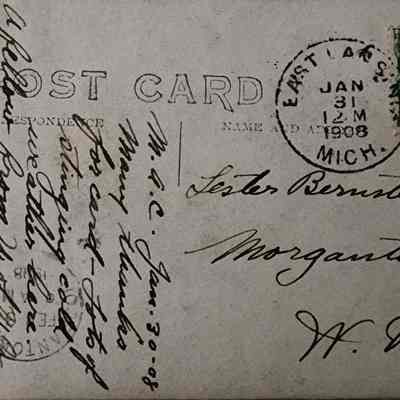 POST CARD
CORRESPONDENCE
NAME AND AD
EAST LANS
JAN
31
12 M
1908
MICH.
M.A.C. Jan. 30-08
Many thanks
for card - lots of
stinging cold
weather here
a fellow from
Lester Bernst
Morgant
W.